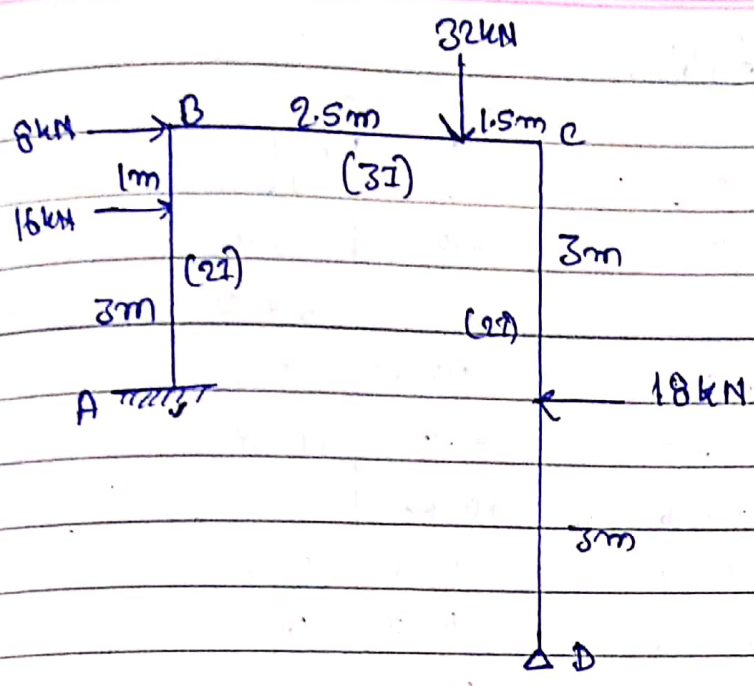 32kN
8kN B 2.5m 1.5m C
1m (3I)
16kN
(2I) 3m
3m (2I)
A 18kN
3m
D